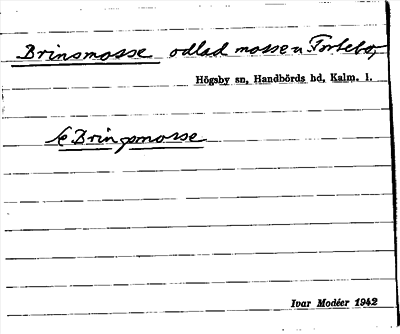 Brinsmosse odlad mosse u Fortebo,
Högsby sn, Handbörds hd, Kalm. l.
Se Bringsmosse
Ivar Modéer 1942